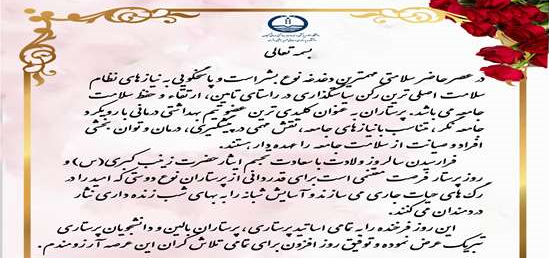 بسمه تعالی
در عصر حاضر سلامتی مهمترین دغدغه نوع بشر است و پاسخگویی به نیازهای نظام
سلامت اصلی ترین رکن سیاستگذاری در راستای تامین، ارتقاء و حفظ سلامت
جامعه می باشد. پرستاران به عنوان کلیدی ترین عضو تیم بهداشتی درمانی با رویکرد
جامعه نگر، متناسب با نیازهای جامعه، نقش مهمی در پیشگیری، درمان و توان بخشی
افراد و صیانت از سلامت جامعه را عهده دار هستند.
فرارسیدن سالروز ولادت با سعادت تجسم ایثار حضرت زینب کبری (س) و
روز پرستار فرصت مغتنمی است برای قدردانی از پرستاران نوع دوستی که امید را در
رگ های حیات جاری می سازند و آسایش شبانه را به بهای شب زنده داری نثار
دردمندان می کنند.
این روز فرخنده را به تمامی اساتید پرستاری، پرستاران بالین و دانشجویان پرستاری
تبریک عرض نموده و توفیق روز افزون برای تمامی تلاش گران این عرصه آرزومندم.